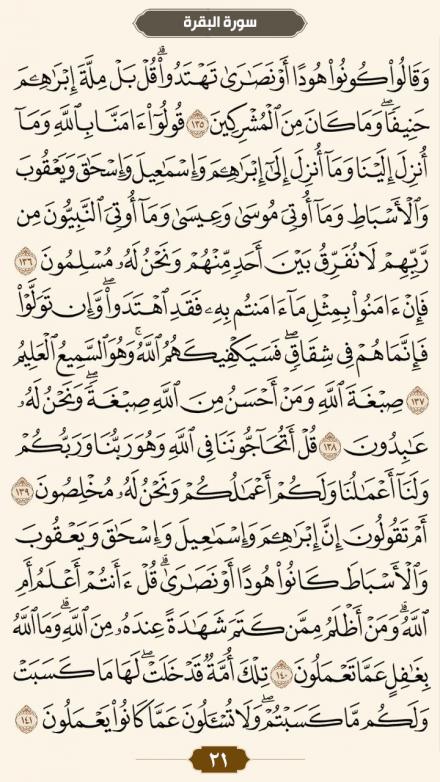 سورة البقرة
وَقَالُوا۟ كُونُوا۟ هُودًا أَوْ نَصَٰرَىٰ تَهْتَدُوا۟ ۗ قُلْ بَلْ مِلَّةَ إِبْرَٰهِـۧمَ
حَنِيفًا ۖ وَمَا كَانَ مِنَ ٱلْمُشْرِكِينَ ١٣٥ قُولُوٓا۟ ءَامَنَّا بِٱللَّهِ وَمَآ
أُنزِلَ إِلَيْنَا وَمَآ أُنزِلَ إِلَىٰٓ إِبْرَٰهِـۧمَ وَإِسْمَٰعِيلَ وَإِسْحَٰقَ وَيَعْقُوبَ
وَٱلْأَسْبَاطِ وَمَآ أُوتِىَ مُوسَىٰ وَعِيسَىٰ وَمَآ أُوتِىَ ٱلنَّبِيُّونَ مِن
رَّبِّهِمْ لَا نُفَرِّقُ بَيْنَ أَحَدٍ مِّنْهُمْ وَنَحْنُ لَهُۥ مُسْلِمُونَ ١٣٦
فَإِنْ ءَامَنُوا۟ بِمِثْلِ مَآ ءَامَنتُم بِهِۦ فَقَدِ ٱهْتَدَوا۟ ۖ وَّإِن تَوَلَّوْا۟
فَإِنَّمَا هُمْ فِى شِقَاقٍ ۖ فَسَيَكْفِيكَهُمُ ٱللَّهُ ۚ وَهُوَ ٱلسَّمِيعُ ٱلْعَلِيمُ
١٣٧ صِبْغَةَ ٱللَّهِ ۖ وَمَنْ أَحْسَنُ مِنَ ٱللَّهِ صِبْغَةً ۖ وَنَحْنُ لَهُۥ
عَٰبِدُونَ ١٣٨ قُلْ أَتُحَآجُّونَنَا فِى ٱللَّهِ وَهُوَ رَبُّنَا وَرَبُّكُمْ
وَلَنَآ أَعْمَٰلُنَا وَلَكُمْ أَعْمَٰلُكُمْ وَنَحْنُ لَهُۥ مُخْلِصُونَ ١٣٩
أَمْ تَقُولُونَ إِنَّ إِبْرَٰهِـۧمَ وَإِسْمَٰعِيلَ وَإِسْحَٰقَ وَيَعْقُوبَ
وَٱلْأَسْبَاطَ كَانُوا۟ هُودًا أَوْ نَصَٰرَىٰ ۗ قُلْ ءَأَنتُمْ أَعْلَمُ أَمِ
ٱللَّهُ ۗ وَمَنْ أَظْلَمُ مِمَّن كَتَمَ شَهَٰدَةً عِندَهُۥ مِنَ ٱللَّهِ ۗ وَمَا ٱللَّهُ
بِغَٰفِلٍ عَمَّا تَعْمَلُونَ ١٤٠ تِلْكَ أُمَّةٌ قَدْ خَلَتْ ۖ لَهَا مَا كَسَبَتْ
وَلَكُم مَّا كَسَبْتُمْ ۖ وَلَا تُسْـَٔلُونَ عَمَّا كَانُوا۟ يَعْمَلُونَ ١٤١
٢١